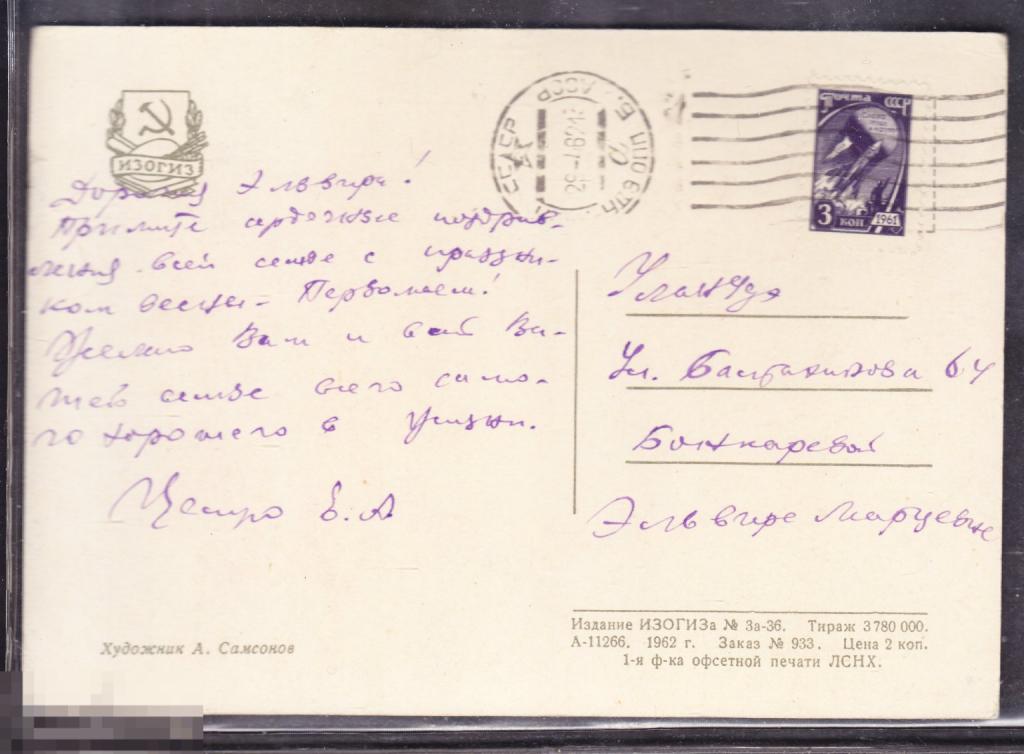 ИЗОГИЗ
Дорогая Эльвира!
Примите сердечные поздрав-
ления всей семье с праздни-
ком весны - Первомаем!
Желаю Вам и всей Ва-
шей семье всего само-
го хорошего в жизни.
Е.А.
Почта СССР
3 КОП 1961
УЛАН-УДЭ
Б. АССР
Улан Удэ
Ул. Балтахинова 64
Бочкаревой
Эльвире Марцевне
Художник А. Самсонов
Издание ИЗОГИЗа № 3а-36. Тираж 3 780 000.
А-11266. 1962 г. Заказ № 933. Цена 2 коп.
1-я ф-ка офсетной печати ЛСНХ.